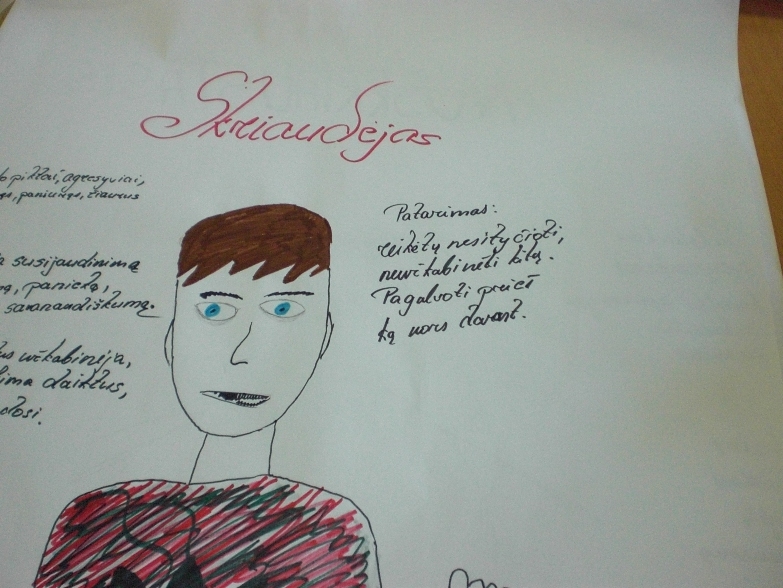 Skriaudėjas
piktai, agresyviai,
paniuręs, žiaurus
susijaudinimą
paniekę,
savanaudiškumą.
užkabinėja,
ima daiktus,
Patarimas:
reikėtų nesityčioti,
neužkabinėti kitų.
Pagalvoti prieš
ką nors darant.